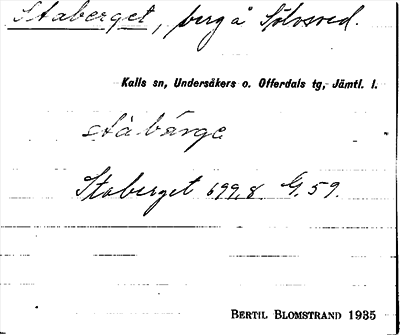 Staberget, berg å Sölvsved.
Kalls sn, Undersåkers o. Offerdals tg, Jämtl. l.
stàbárge
Staberget 699,8 G. 59.
BERTIL BLOMSTRAND 1935